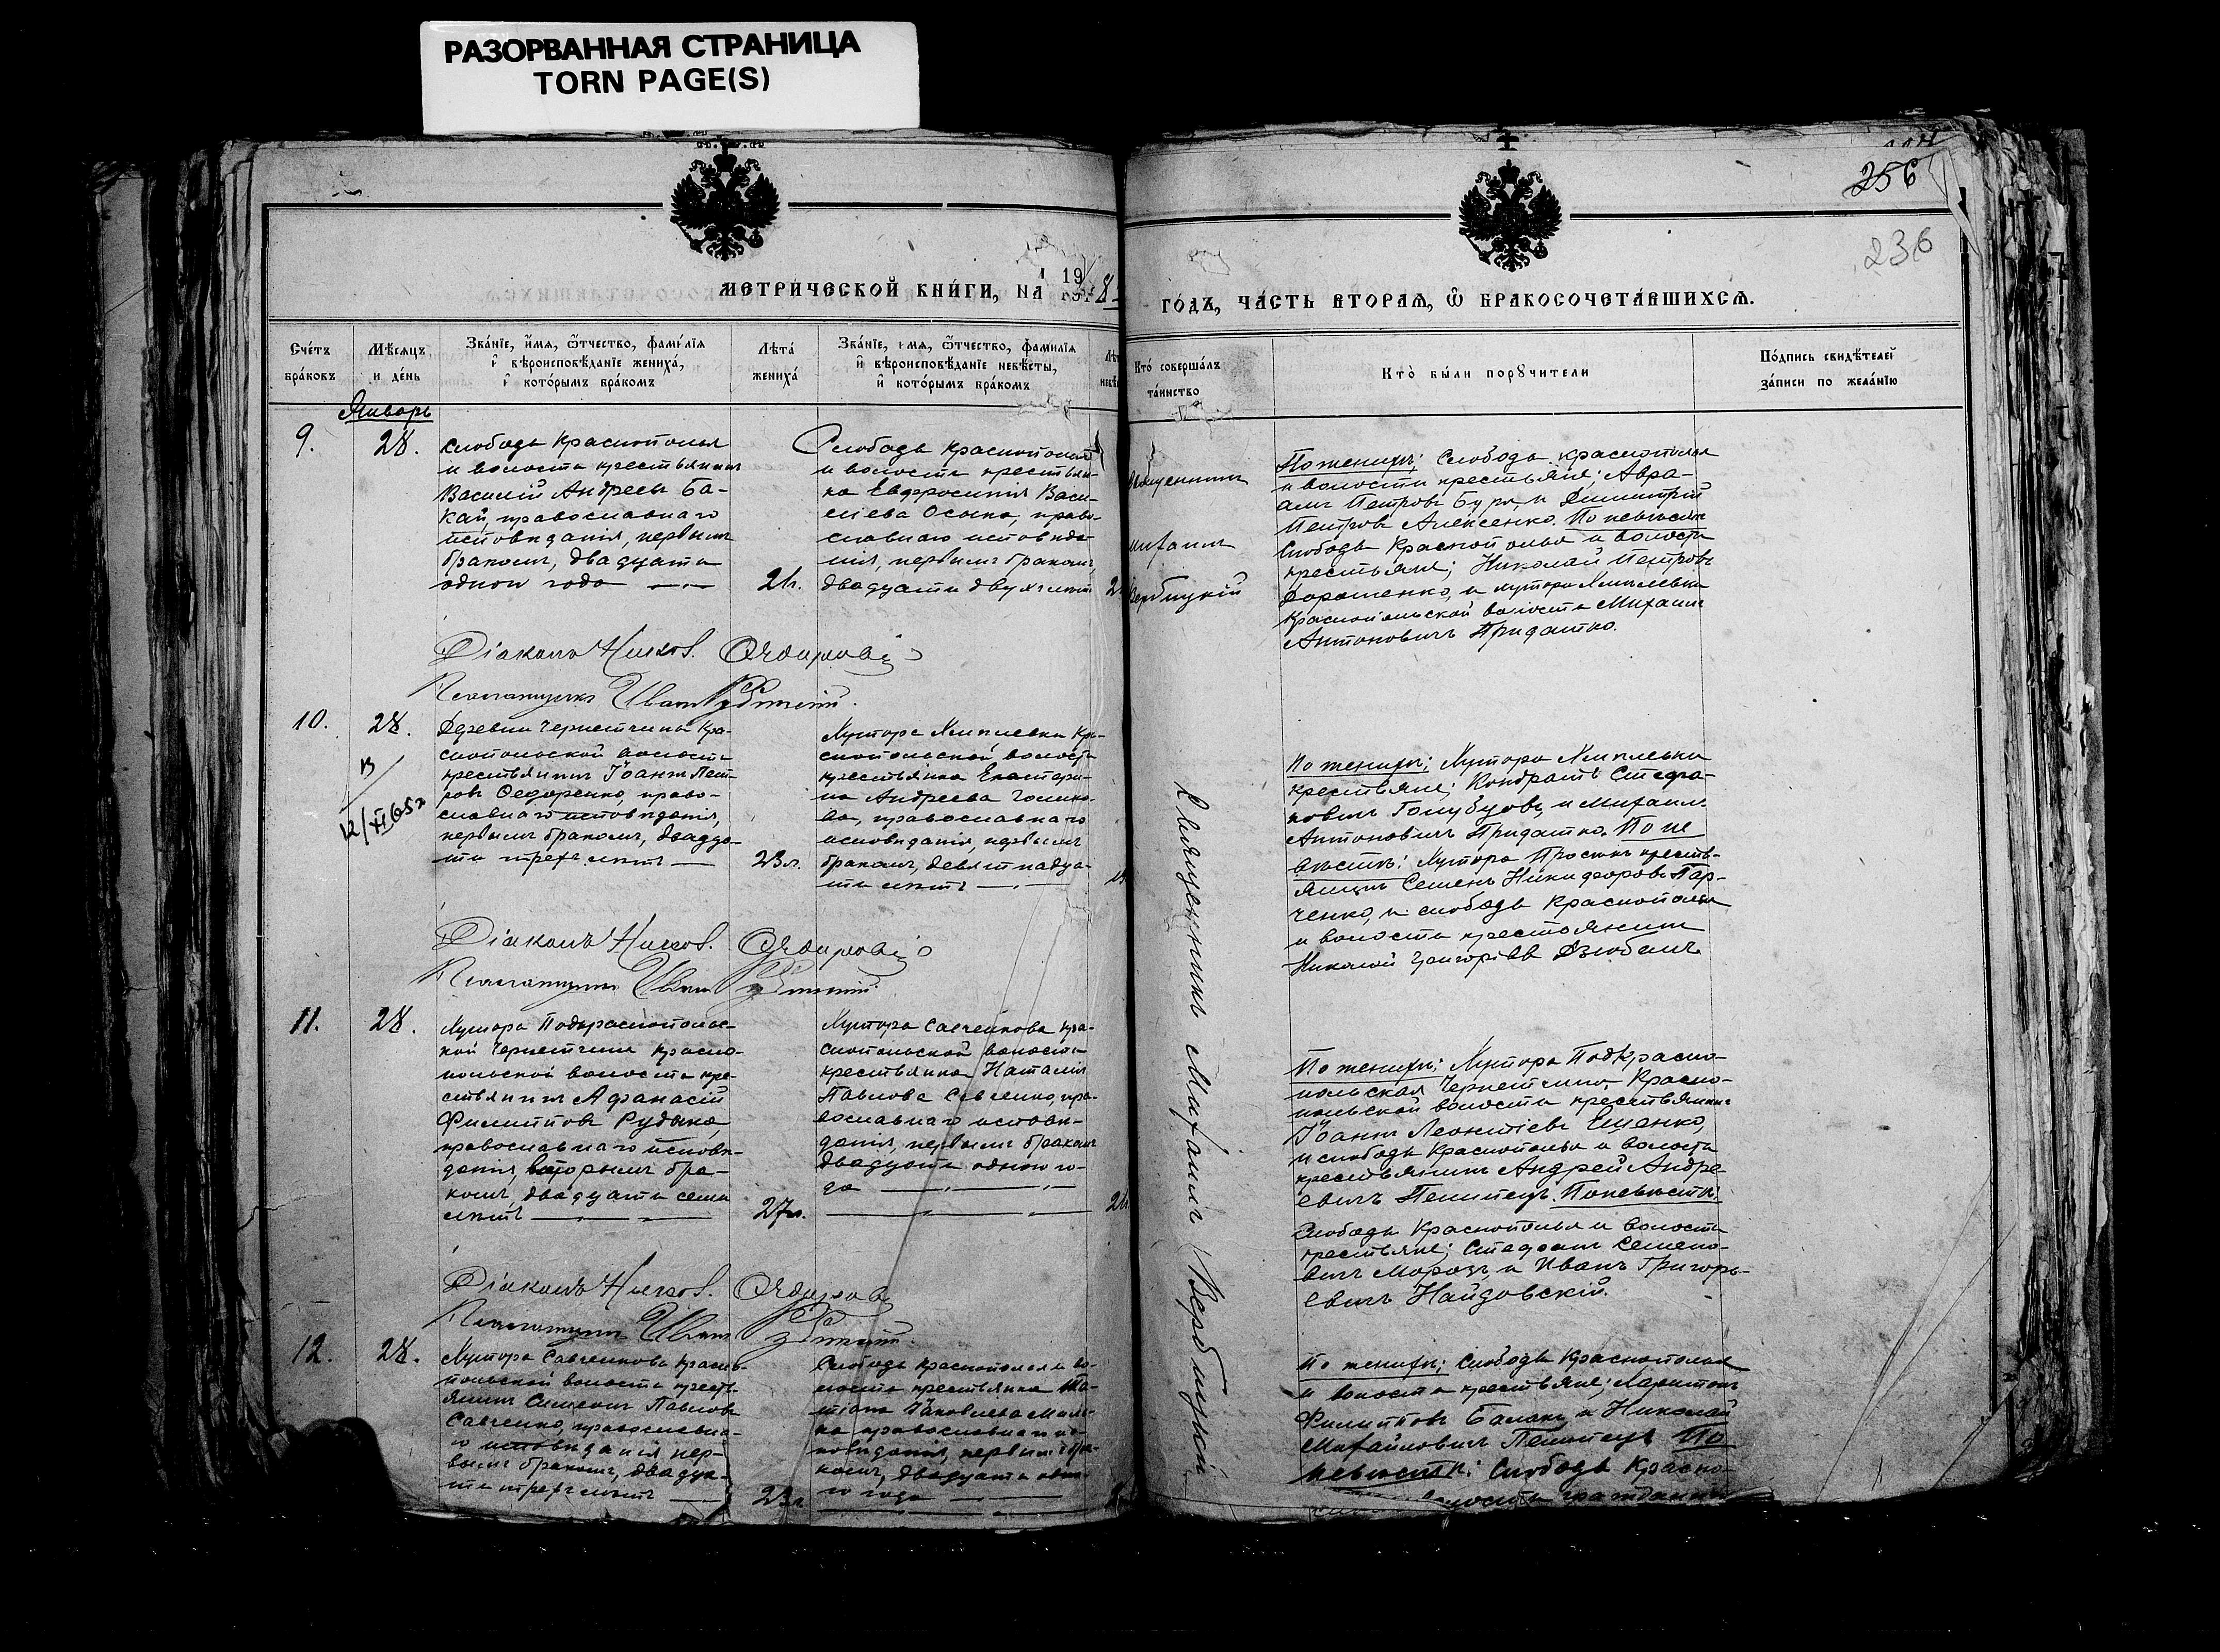 РАЗОРВАННАЯ СТРАНИЦА
TORN PAGE(S)
МЕТРИ́ЧЕСКОЙ КНИ́ГИ, НА 19 8
ГО́ДЪ, ЧА́СТЬ ВТОРАѦ, Ѿ БРАКОСОЧЕТА́ВШИХСѦ.
256
236
Сче́тъ бра́ковъ
Мѣ́сяцъ и де́нь
Зва́нїе, и́мя, ѻ́тчество, фами́лїя и҆ вѣроисповѣ́данїе жениха́, и҆ кото́рымъ бра́комъ
Лѣта́ жениха́
Зва́нїе, и́мя, ѻ́тчество, фами́лїя и҆ вѣроисповѣ́данїе невѣ́сты, и҆ кото́рымъ бра́комъ
Кто̀ соверша́лъ та́инство
Кто̀ бы́ли порꙋчи́тели
По́дпись свидѣ́телей за́писи по жела́нїю
Январь
9.
28.
Слободы Краснополья
и волости крестьянинъ
Василій Андреевъ Ба-
кай, православнаго
исповѣданія, первымъ
бракомъ, двадцати
одного года
21.
Слободы Краснополья
и волости крестьян-
ка Евфросинія Васи-
ліева Осыка, право-
славнаго исповѣда-
нія, первымъ бракомъ,
двадцати двухъ лѣтъ
Священникъ
Михаилъ
Вербицкій
По женихѣ: Слободы Краснополья
и волости крестьяне; Авра-
амъ Петровъ Буря, и Димитрій
Петровъ Алексенко. По невѣстѣ
Слободы Краснополья и волости
крестьяне; Николай Петровъ
Дорошенко, и хутора Хмылевки
Краснопольской волости Михаилъ
Антоновичъ Придатко.
Діаконъ
Псаломщикъ Иванъ
10.
28.
12/XI 65г
Деревни Чернетчины Кра-
снопольской волости
крестьянинъ Іоаннъ Пет-
ровъ Федоренко, право-
славнаго исповѣданія,
первымъ бракомъ, двадца-
ти трехъ лѣтъ
23л.
Хутора Хмылевки Кра-
снопольской волости
крестьянка Екатери-
на Андреева Голико-
ва, православнаго
исповѣданія, первымъ
бракомъ, девятнадца-
ти лѣтъ
Священникъ Михаилъ Вербицкій
По женихѣ: Хутора Хмылевки
крестьяне; Кондратъ Стефа-
новичъ Голубцовъ, и Михаилъ
Антоновичъ Придатко. По не
вѣстѣ: Хутора Просинъ кресть-
янинъ Семенъ Никифоровъ Пар-
ченко, и слободы Краснополья
и волости крестьянинъ
Николай Григорьевъ Дзюбанъ.
Діаконъ
Псаломщикъ Иванъ
11.
28.
Хутора Подкраснополь-
ной Чернетчины Красно-
польской волости кре-
стьянинъ Афанасій
Филипповъ Рудыка,
православнаго исповѣ-
данія, вторымъ бра-
комъ, двадцати семи
лѣтъ
27л.
Хутора Савченкова Кра-
снопольской волости
крестьянка Наталія
Павлова Савченко, пра-
вославнаго исповѣ-
данія, первымъ бракомъ
двадцати одного го-
да
По женихѣ: Хутора Подкрасно-
польская Чернетчина Красно-
польской волости крестьянинъ
Іоаннъ Леонтіевъ Ещенко,
и слободы Краснополья и волости
крестьянинъ Андрей Андре
евичъ Пелипецъ. По невѣстѣ:
Слободы Краснополья и волости
крестьяне; Стефанъ Семено-
вичъ Морозъ, и Иванъ Григорь-
евичъ Найдовскій.
Діаконъ
Псаломщикъ Иванъ
12.
28.
Хутора Савченкова Красно-
польской волости кресть-
янинъ Симеонъ Павловъ
Савченко, православна-
го исповѣданія, пер-
вымъ бракомъ, двадца-
ти трехъ лѣтъ
23л.
Слободы Краснополья и во-
лости крестьянка Та-
тіана Яковлева
православнаго ис-
повѣданія, первымъ бра-
комъ, двадцати одно-
го года
По женихѣ: Слободы Краснополья
и волости крестьяне; Харитонъ
Филипповъ Балакъ, и Николай
Михайловичъ Пелипецъ. По
невѣстѣ: Слободы Красно-
волости граждане